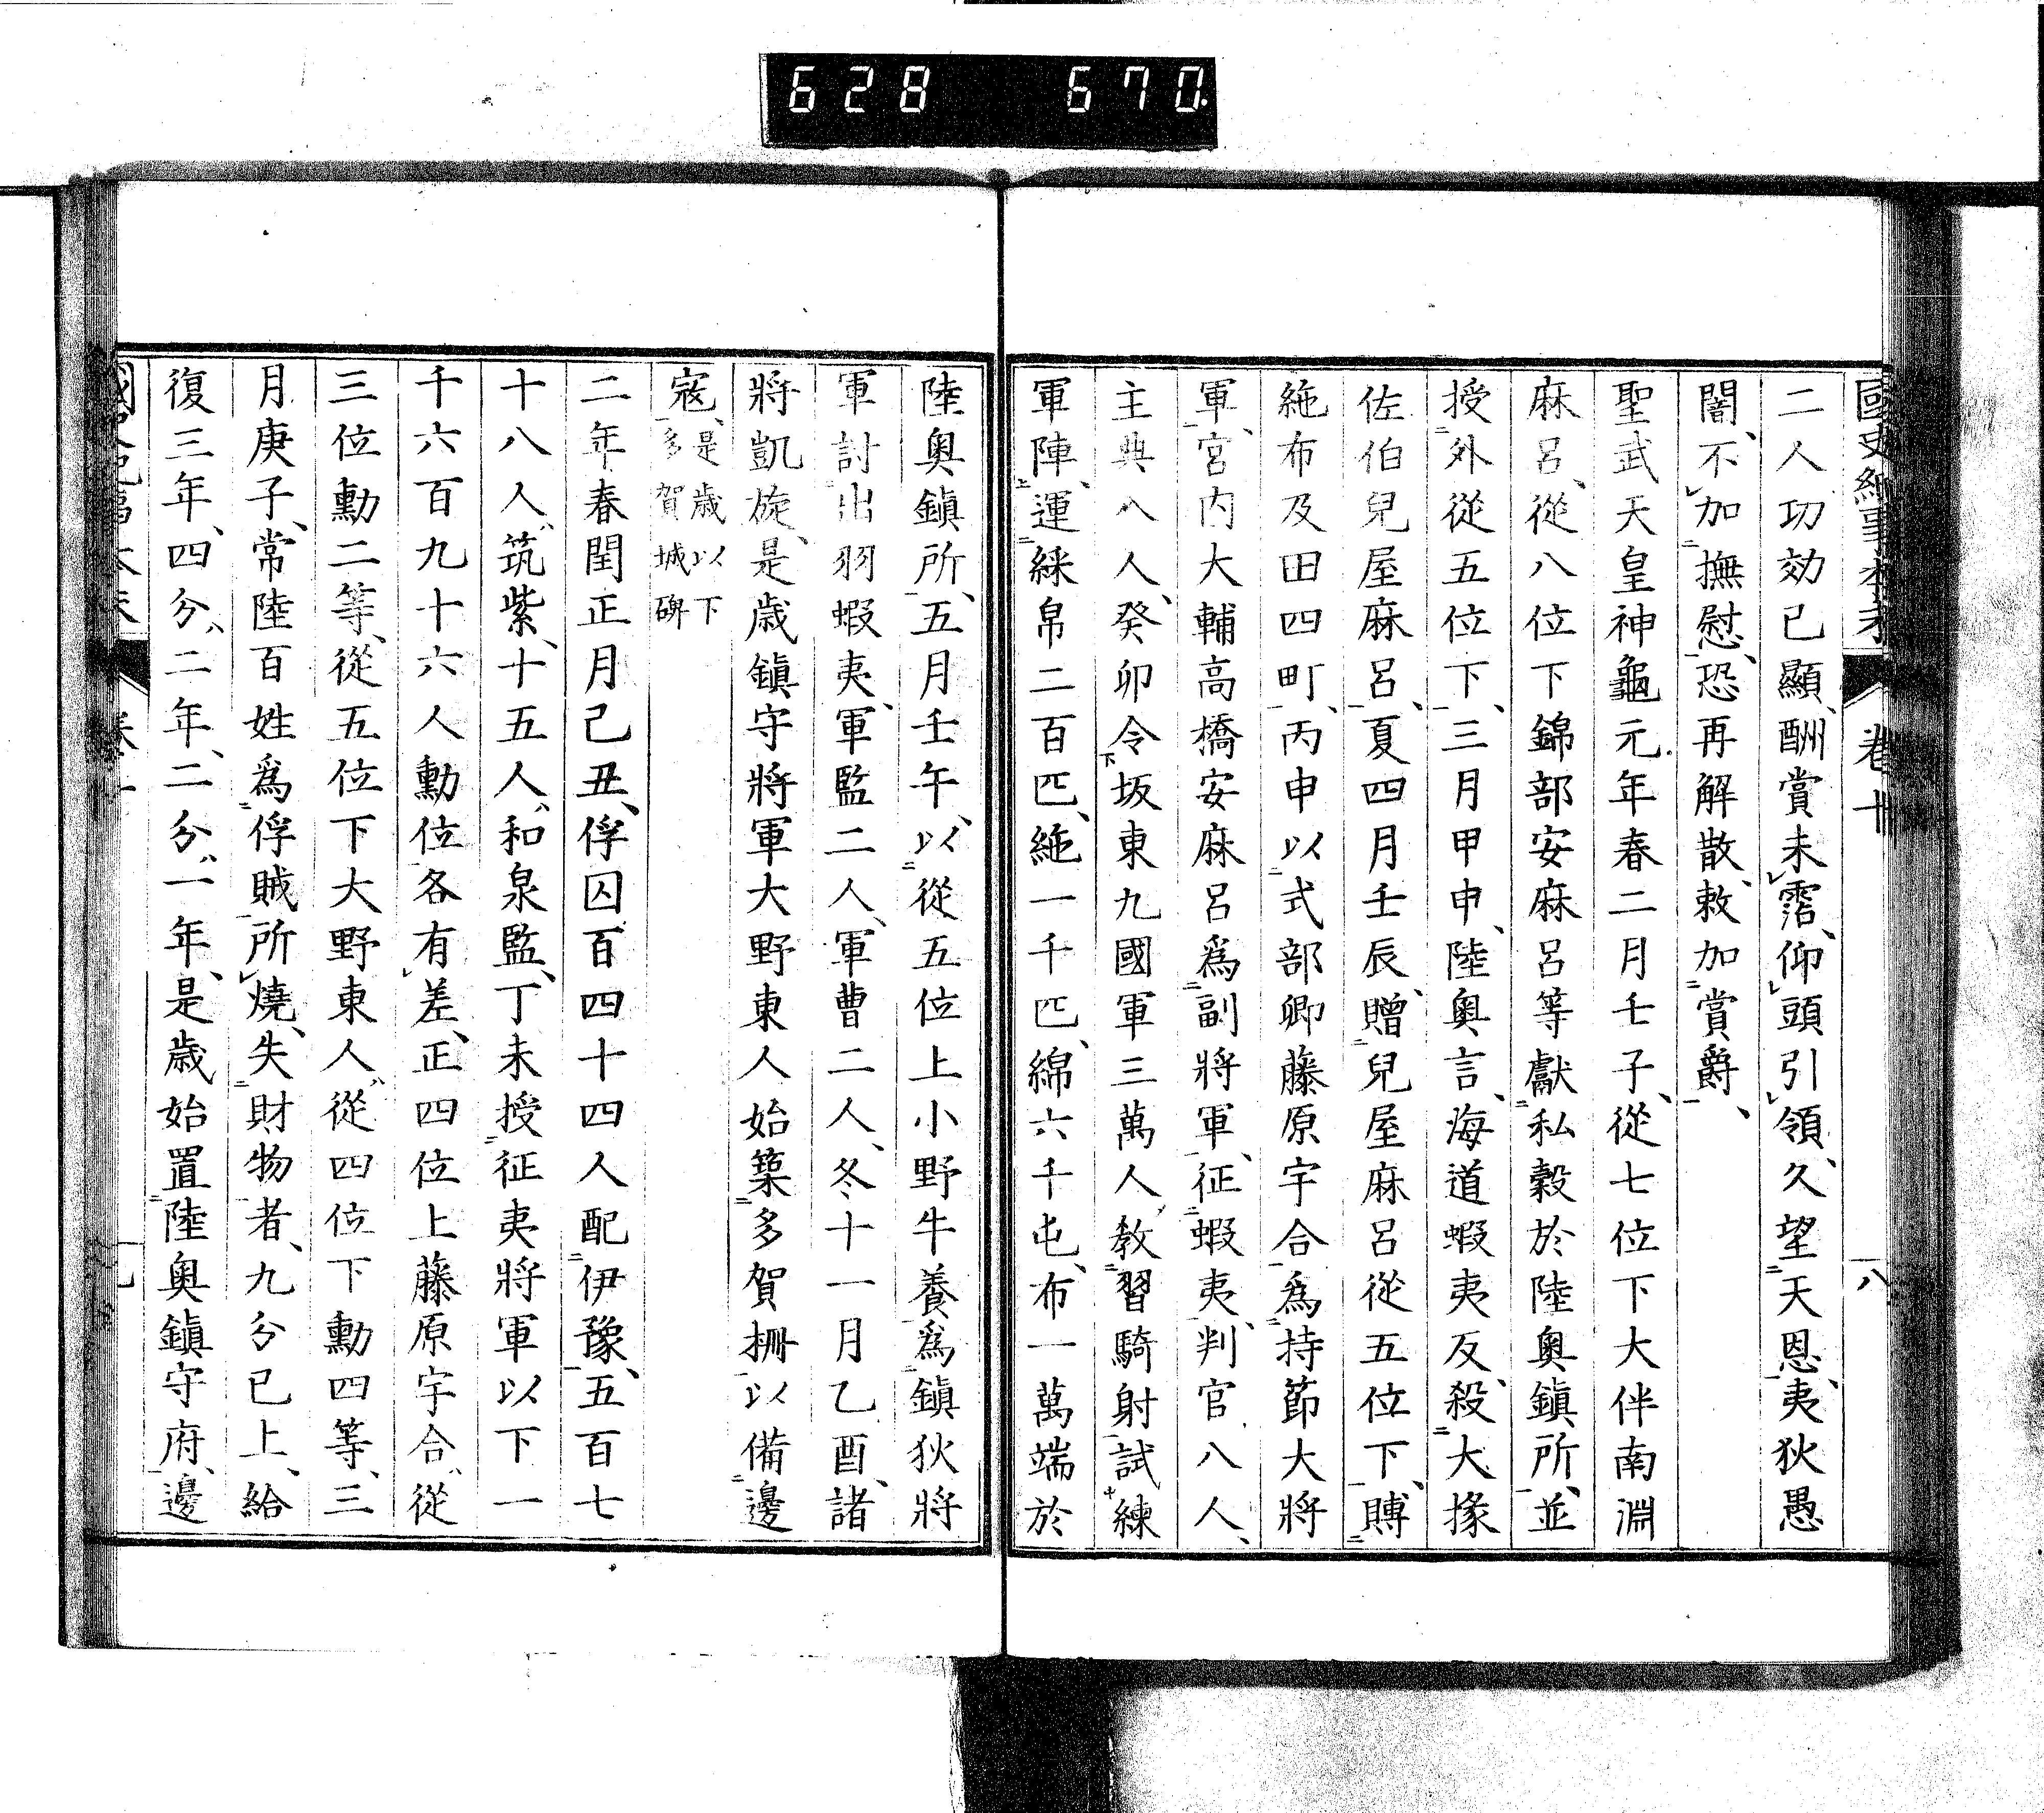 628 670
國史紀事本末 卷十 八
二人功効已顯、酬賞未霑、仰頭引領、久望天恩、夷狄愚
闇、不加撫慰、恐再解散、敕加賞爵、
聖武天皇神龜元年春二月壬子、從七位下大伴南淵
麻呂、從八位下錦部安麻呂等獻私穀於陸奧鎮所、並
授外從五位下、三月甲申、陸奧言、海道蝦夷反、殺大掾
佐伯兒屋麻呂、夏四月壬辰、贈兒屋麻呂從五位下、賻
絁布及田四町、丙申以式部卿藤原宇合爲持節大將
軍、宮内大輔高橋安麻呂爲副將軍、征蝦夷、判官八人、
主典八人、癸卯令坂東九國軍三萬人、教習騎射試練
軍陣、運綵帛二百匹、絁一千匹、綿六千屯、布一萬端於
陸奧鎮所、五月壬午、以從五位上小野牛養爲鎮狄將
軍討出羽蝦夷、軍監二人、軍曹二人、冬十一月乙酉、諸
將凱旋、是歳鎮守將軍大野東人始築多賀柵以備邊
寇、是歳以下多賀城碑
二年春閏正月己丑、俘囚百四十四人配伊豫、五百七
十八人、筑紫、十五人、和泉監、丁未授征夷將軍以下一
千六百九十六人勳位各有差、正四位上藤原宇合、從
三位勳二等、從五位下大野東人、從四位下勳四等、三
月庚子、常陸百姓爲俘賊所燒、失財物者、九分已上、給
復三年、四分、二年、二分、一年、是歳始置陸奧鎮守府、邊